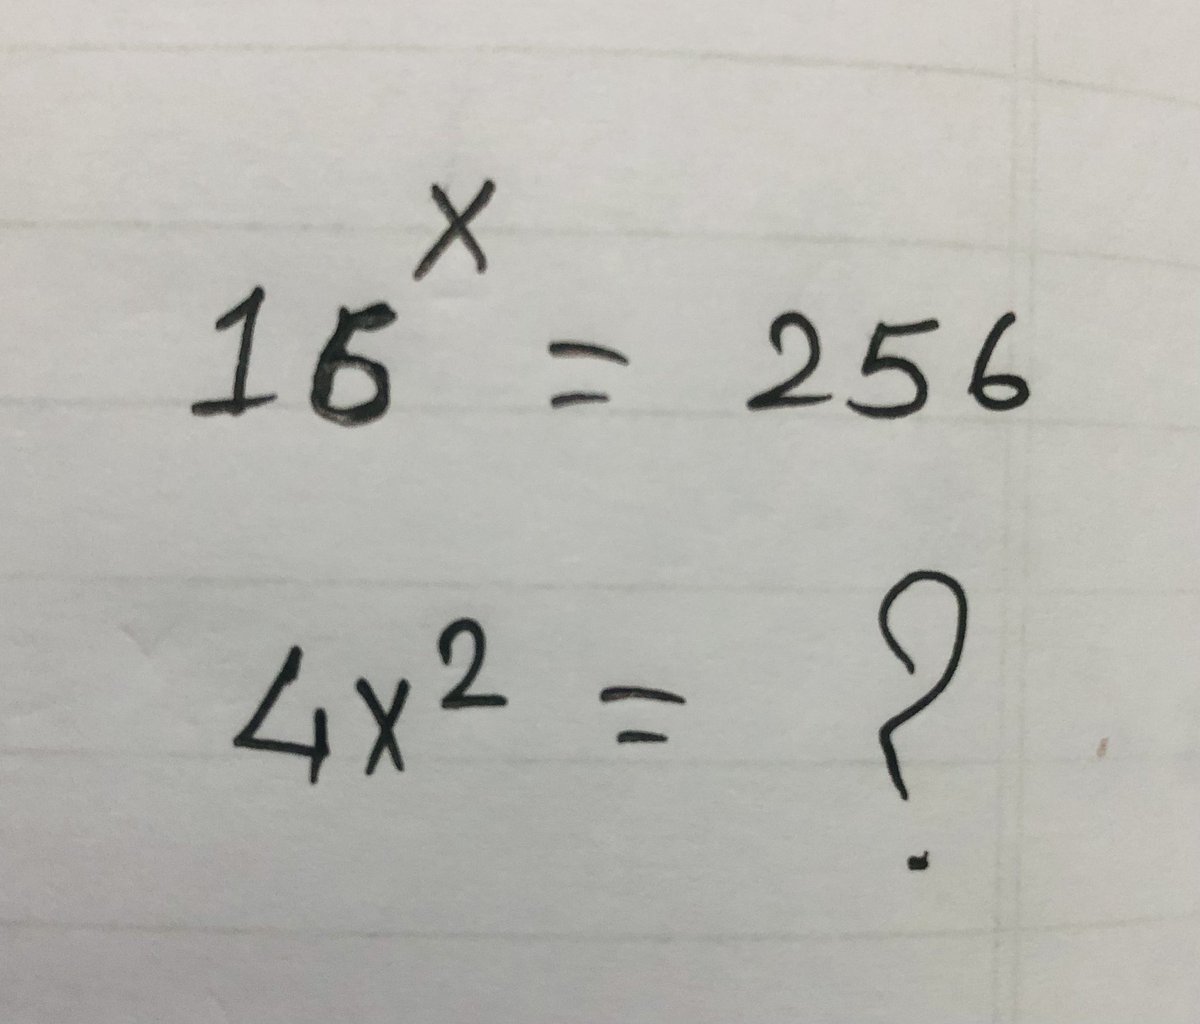 16ˣ = 256
4x² = ?